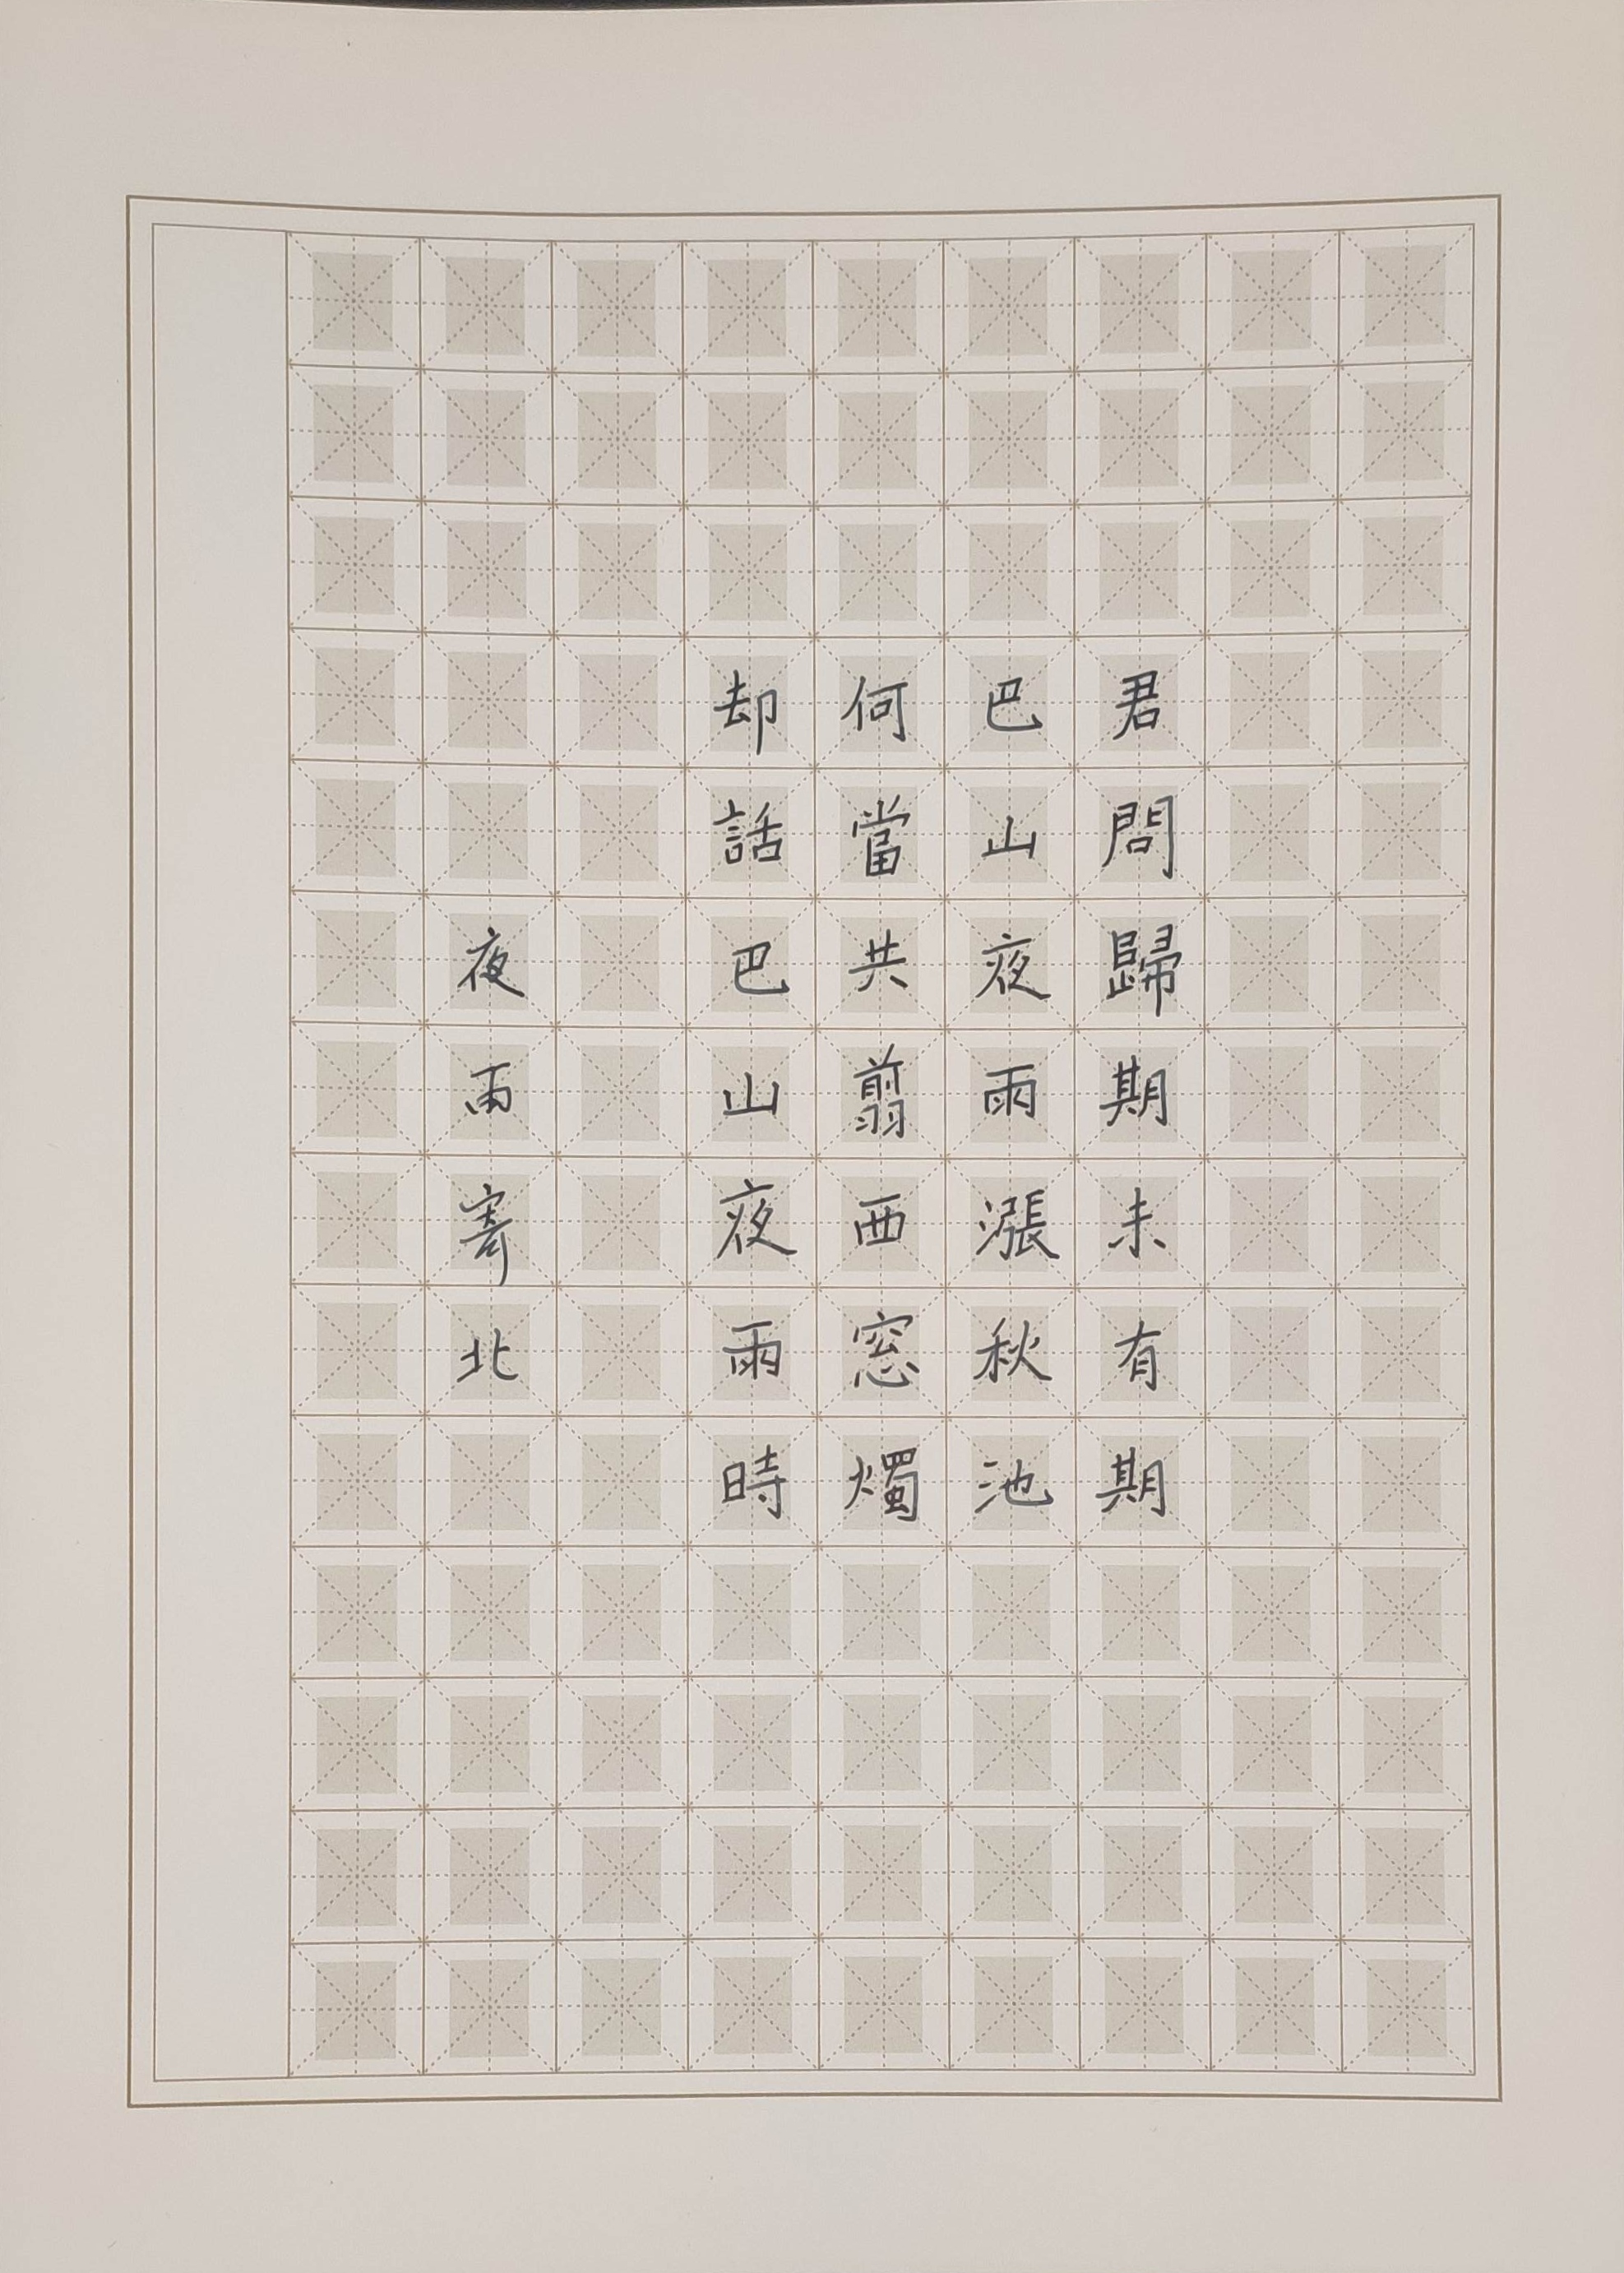 君問歸期未有期
巴山夜雨漲秋池
何當共翦西窓燭
却話巴山夜雨時
夜雨寄北